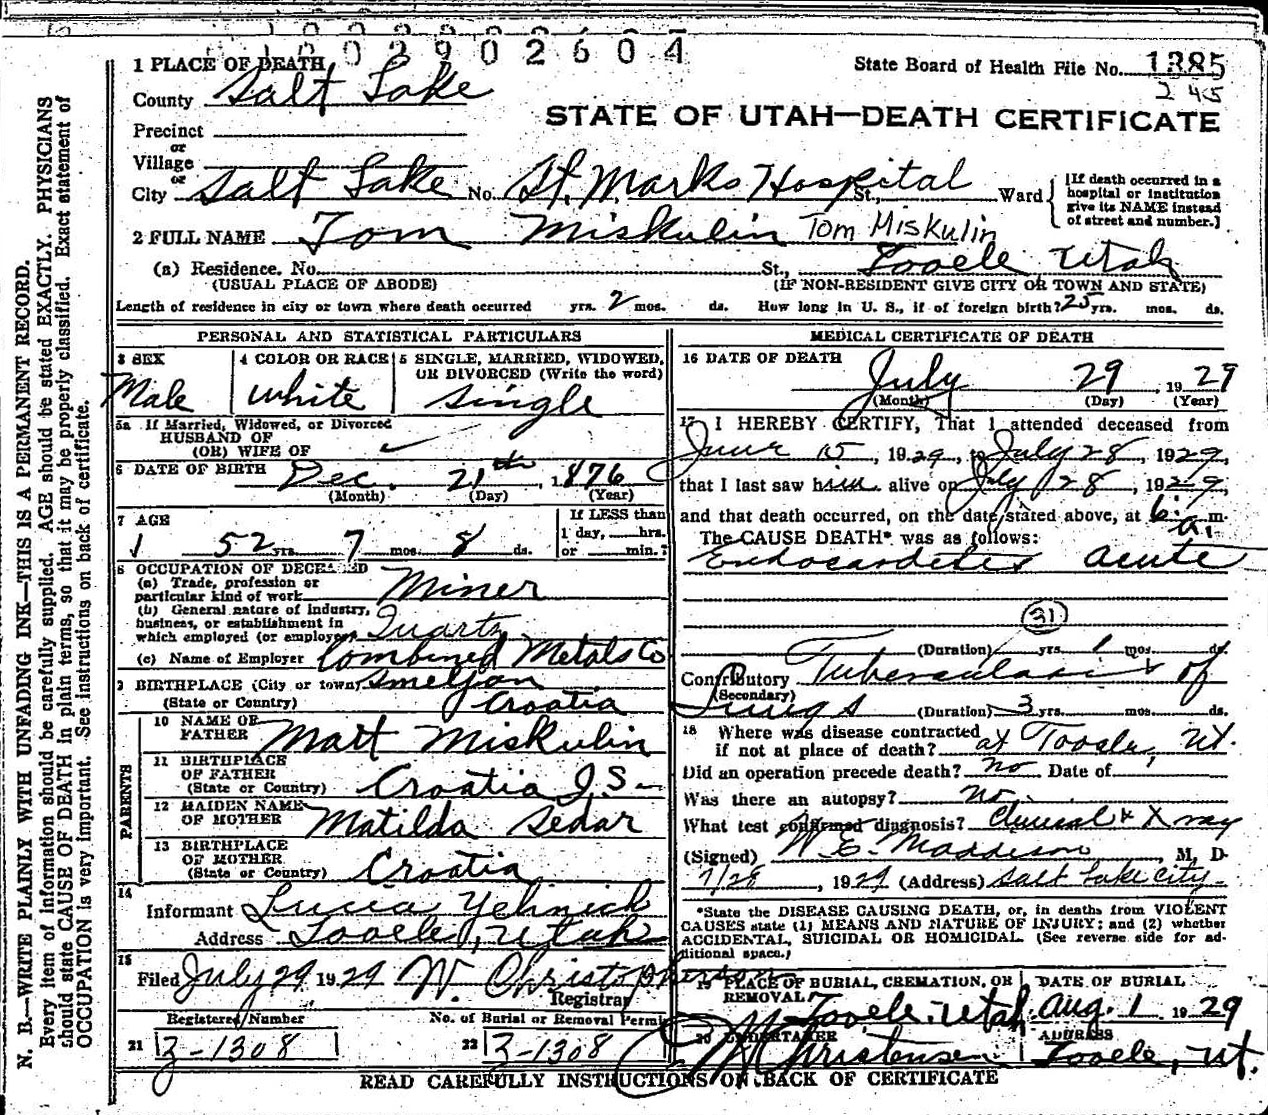 1002902604
1 PLACE OF DEATH
State Board of Health File No. 1385
245
County Salt Lake
STATE OF UTAH—DEATH CERTIFICATE
Precinct
or
Village
or
City Salt Lake No. St. Marks Hospital St., Ward
[If death occurred in a hospital or institution give its NAME instead of street and number.]
2 FULL NAME Tom Miskulin Tom Miskulin
(a) Residence. No. St., Tooele, Utah
(USUAL PLACE OF ABODE) (IF NON-RESIDENT GIVE CITY OR TOWN AND STATE)
Length of residence in city or town where death occurred yrs. 2 mos. ds. How long in U. S., if of foreign birth? 25 yrs. mos. ds.
PERSONAL AND STATISTICAL PARTICULARS
3 SEX
Male
4 COLOR OR RACE
White
5 SINGLE, MARRIED, WIDOWED, OR DIVORCED (Write the word)
Single
5a If Married, Widowed, or Divorced
HUSBAND OF
(OR) WIFE OF
6 DATE OF BIRTH Dec. 21th, 1876
(Month) (Day) (Year)
7 AGE
52 yrs. 7 mos. 8 ds.
If LESS than
1 day, hrs.
or min.?
8 OCCUPATION OF DECEASED
(a) Trade, profession or particular kind of work Miner
(b) General nature of industry, business, or establishment in which employed (or employer) Quartz
(c) Name of Employer Combined Metals Co
9 BIRTHPLACE (City or town) Smeljan
(State or Country) Croatia
PARENTS
10 NAME OF FATHER Matt Miskulin
11 BIRTHPLACE OF FATHER
(State or Country) Croatia J.S.
12 MAIDEN NAME OF MOTHER Matilda Sedar
13 BIRTHPLACE OF MOTHER
(State or Country) Croatia
14
Informant Lucia Yelinich
Address Tooele, Utah
15
Filed July 29 1929 W. Christopherson
Registrar
Registered Number No. of Burial or Removal Permit
21 Z-1308 22 Z-1308
MEDICAL CERTIFICATE OF DEATH
16 DATE OF DEATH
July 29, 1929
(Month) (Day) (Year)
17 I HEREBY CERTIFY, That I attended deceased from
June 15, 1929, to July 28, 1929,
that I last saw him alive on July 28, 1929,
and that death occurred, on the date stated above, at 6 a.m.
The CAUSE DEATH* was as follows:
Endocarditis acute
31
(Duration) yrs. 1 mos. ds.
Contributory Tuberculosis of
(Secondary)
Lungs (Duration) 3 yrs. mos. ds.
18 Where was disease contracted
if not at place of death? at Tooele, Ut.
Did an operation precede death? No Date of
Was there an autopsy? No.
What test confirmed diagnosis? Clinical & X ray
(Signed) W. E. Maddison, M. D.
7/29, 1929 (Address) Salt Lake City
*State the DISEASE CAUSING DEATH, or, in deaths from VIOLENT
CAUSES state (1) MEANS AND NATURE OF INJURY; and (2) whether
ACCIDENTAL, SUICIDAL OR HOMICIDAL. (See reverse side for additional space.)
19 PLACE OF BURIAL, CREMATION, OR REMOVAL
Tooele, Utah.
DATE OF BURIAL
Aug. 1 1929
20 UNDERTAKER
Christensen
ADDRESS
Tooele, Ut.
READ CAREFULLY INSTRUCTIONS ON BACK OF CERTIFICATE
N. B.—WRITE PLAINLY WITH UNFADING INK—THIS IS A PERMANENT RECORD.
Every item of information should be carefully supplied. AGE should be stated EXACTLY. PHYSICIANS
should state CAUSE OF DEATH in plain terms, so that it may be properly classified. Exact statement of
OCCUPATION is very important. See instructions on back of certificate.